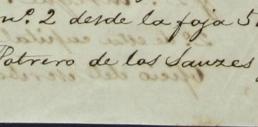 nº. 2 desde la foja 5
Potrero de los Sauzes